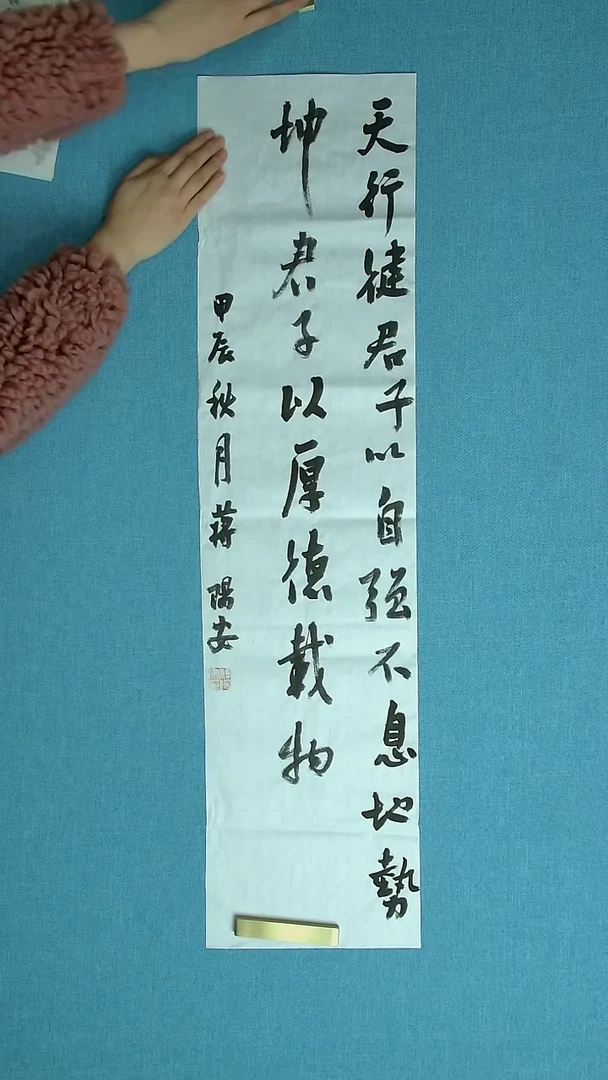 天行健君子以自强不息地勢
坤君子以厚德載物
甲辰秋月蒋陽安